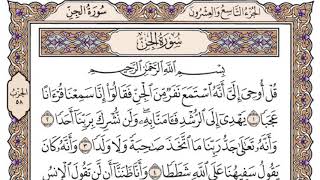 الجزء التاسع والعشرون
سورة الجن
سورة الجن
بسم الله الرحمن الرحيم
قُلْ أُوحِىَ إِلَىَّ أَنَّهُ ٱسْتَمَعَ نَفَرٌ مِّنَ ٱلْجِنِّ فَقَالُوٓا۟ إِنَّا سَمِعْنَا قُرْءَانًا
عَجَبًا ١ يَهْدِىٓ إِلَى ٱلرُّشْدِ فَـَٔامَنَّا بِهِۦ وَلَن نُّشْرِكَ بِرَبِّنَآ أَحَدًا ٢
وَأَنَّهُۥ تَعَٰلَىٰ جَدُّ رَبِّنَا مَا ٱتَّخَذَ صَٰحِبَةً وَلَا وَلَدًا ٣ وَأَنَّهُۥ كَانَ
يَقُولُ سَفِيهُنَا عَلَى ٱللَّهِ شَطَطًا ٤ وَأَنَّا ظَنَنَّآ أَن لَّن تَقُولَ ٱلْإِنسُ
الحزب
٥٨